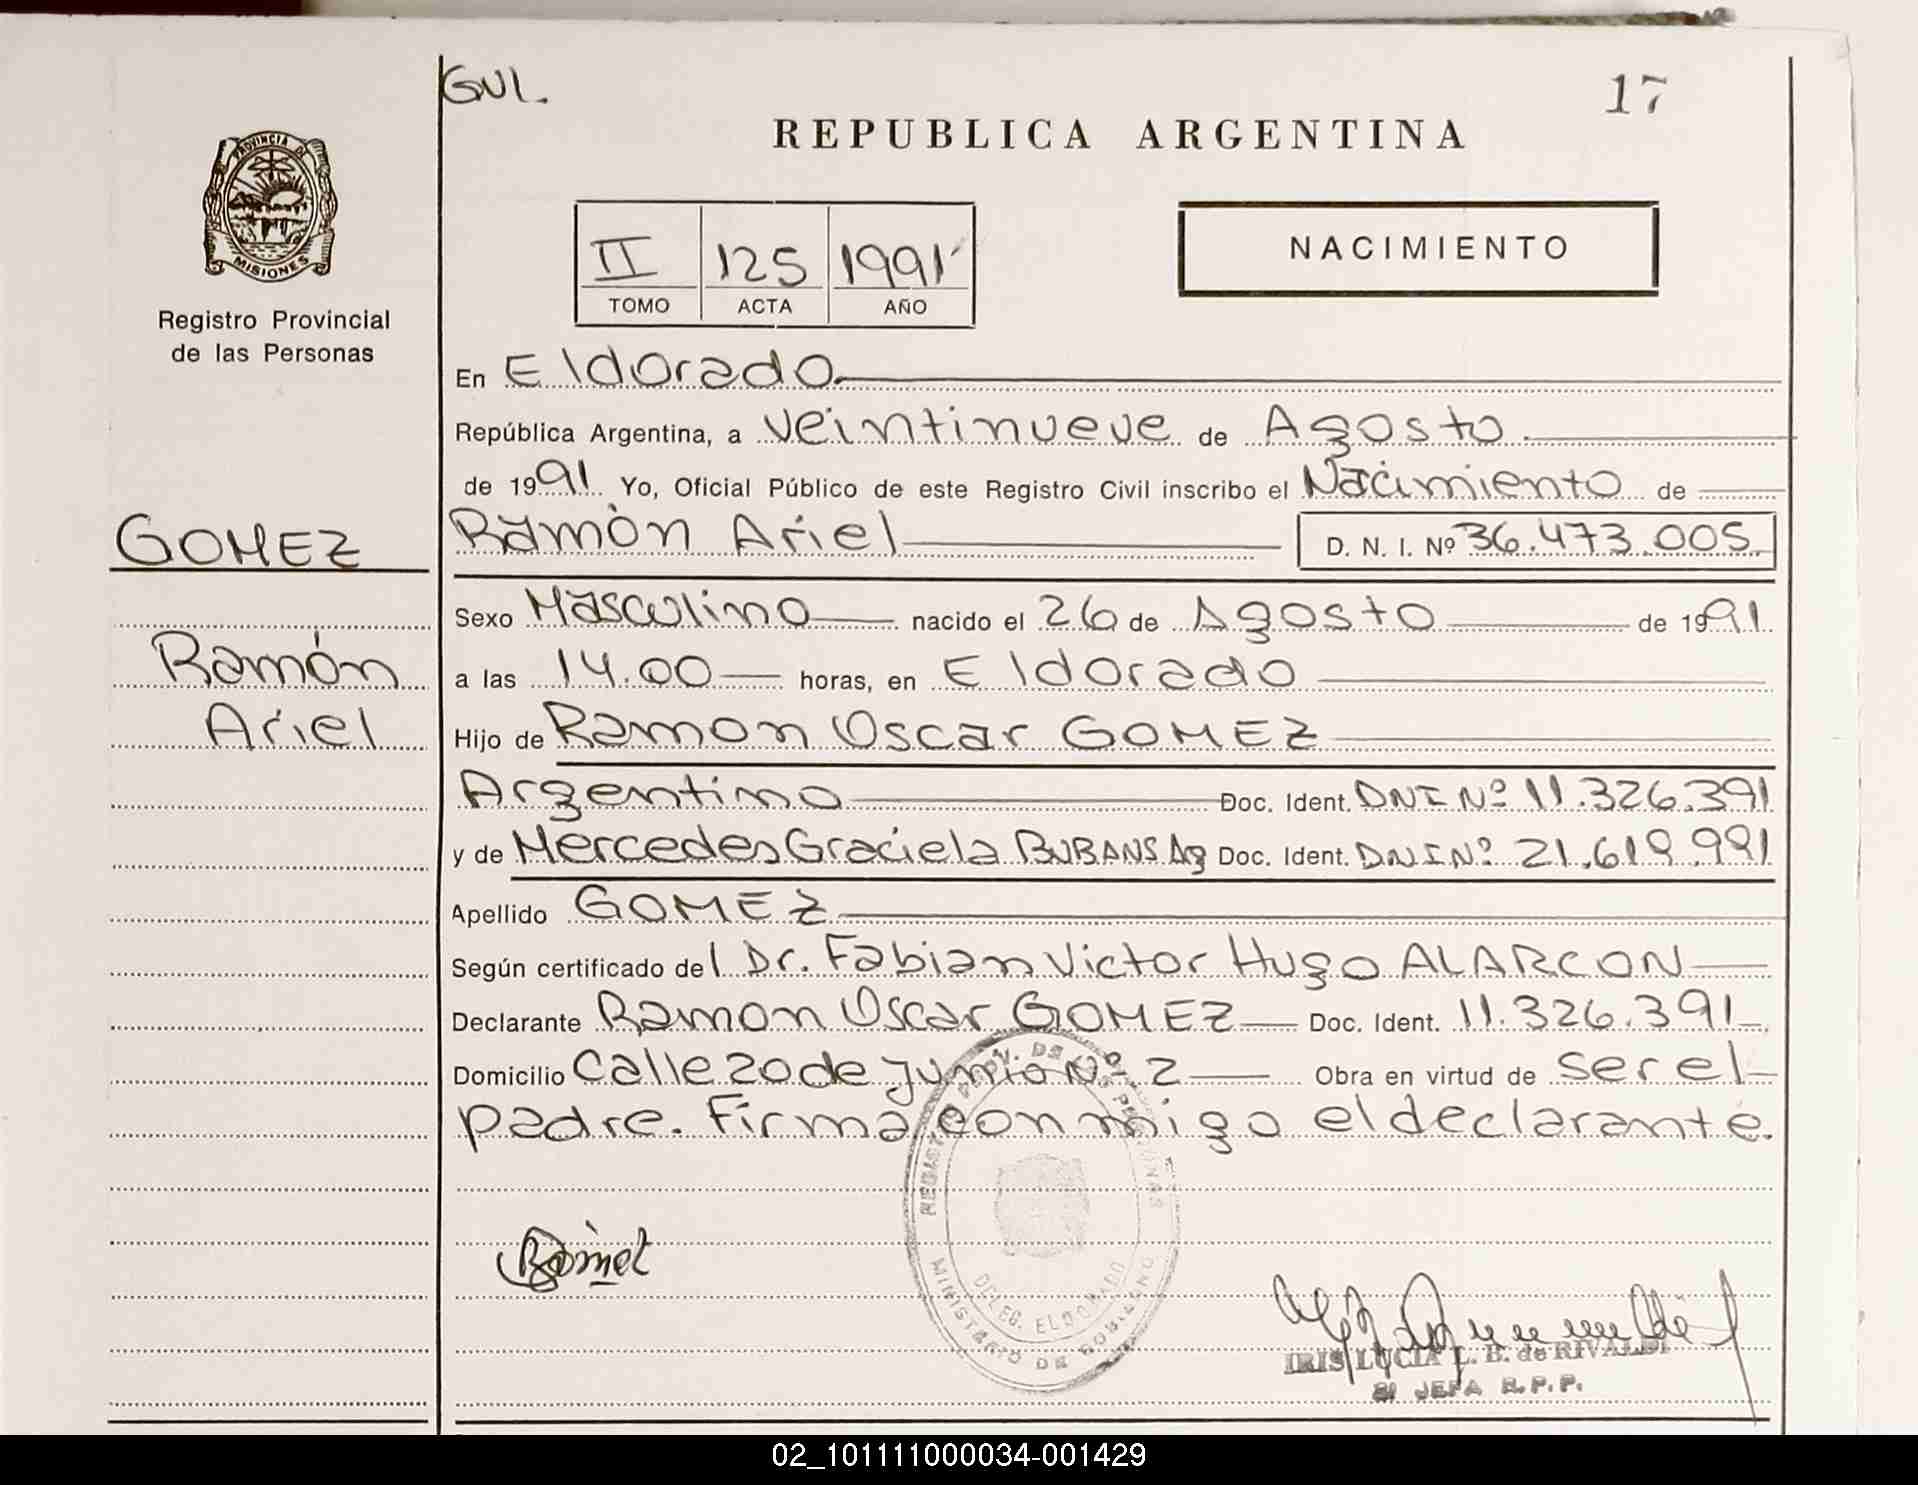 GUI.
17
REPUBLICA ARGENTINA
PROVINCIA DE
MISIONES
Registro Provincial
de las Personas
II 125 1991
TOMO ACTA AÑO
NACIMIENTO
En Eldorado
República Argentina, a veintinueve de Agosto
de 1991 Yo, Oficial Público de este Registro Civil inscribo el Nacimiento de
GOMEZ
Ramón Ariel D. N. I. Nº 36.473.005
Sexo Masculino nacido el 26 de Agosto de 1991
Ramón
a las 14.00 horas, en Eldorado
Ariel
Hijo de Ramon Oscar GOMEZ
Argentino Doc. Ident. DNI Nº 11.326.391
y de Mercedes Graciela BUBANS Arg Doc. Ident. DNI Nº 21.619.991
Apellido GOMEZ
Según certificado del Dr. Fabian Victor Hugo ALARCON
Declarante Ramon Oscar GOMEZ Doc. Ident. 11.326.391
Domicilio Calle 20 de Junio Nº 2 Obra en virtud de ser el
padre. Firma conmigo el declarante.
REGISTRO PROV. DE LAS PERSONAS
DELEG. ELDORADO
MINISTERIO DE GOBIERNO
IRIS LUCIA L. B. de RIVALDI
JEFA R.P.P.
02_101111000034-001429